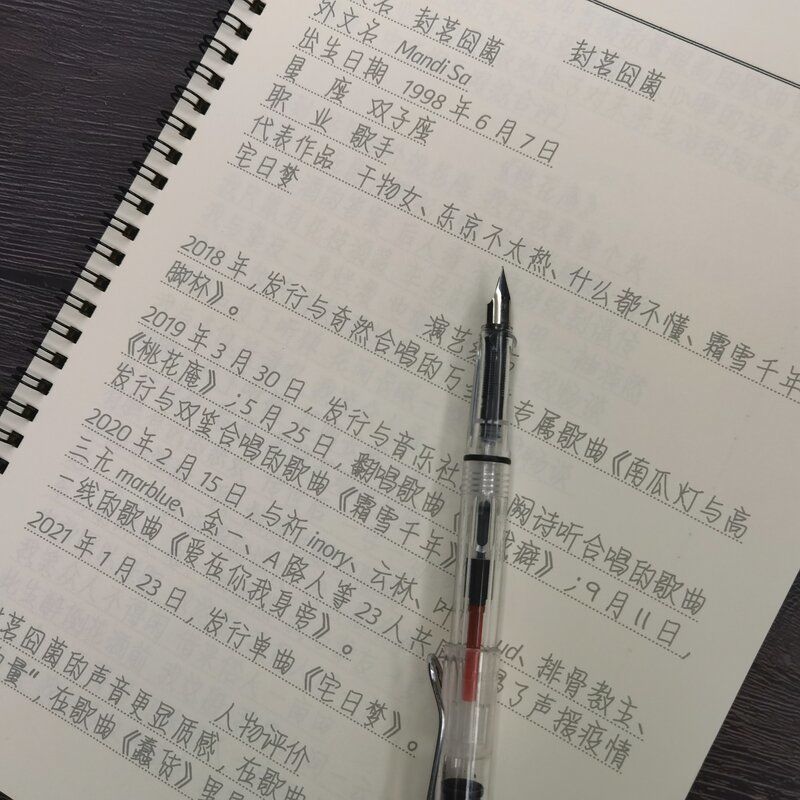 名 封茗囧菌
封茗囧菌
外文名 Mandi Sa
出生日期 1998年6月7日
星 座 双子座
职 业 歌手
代表作品 干物女、东京不太热、什么都不懂、霜雪千年
宅日梦
演艺
2018年,发行与奇然合唱的万 专属歌曲《南瓜灯与高
脚杯》。
2019年3月30日,发行与音乐社 阙诗听合唱的歌曲
《桃花庵》;5月25日,翻唱歌曲《 癖》;9月11日,
发行与双笙合唱的歌曲《霜雪千年》
2020年2月15日,与祈inory、云林、叶 ud、排骨教主、
三无marblue、金一、A路人等23人共 了声援疫情
一线的歌曲《爱在你我身旁》。
2021年1月23日,发行单曲《宅日梦》。
人物评价
茗囧菌的声音更显质感,在歌曲
量",在歌曲《蠢货》里